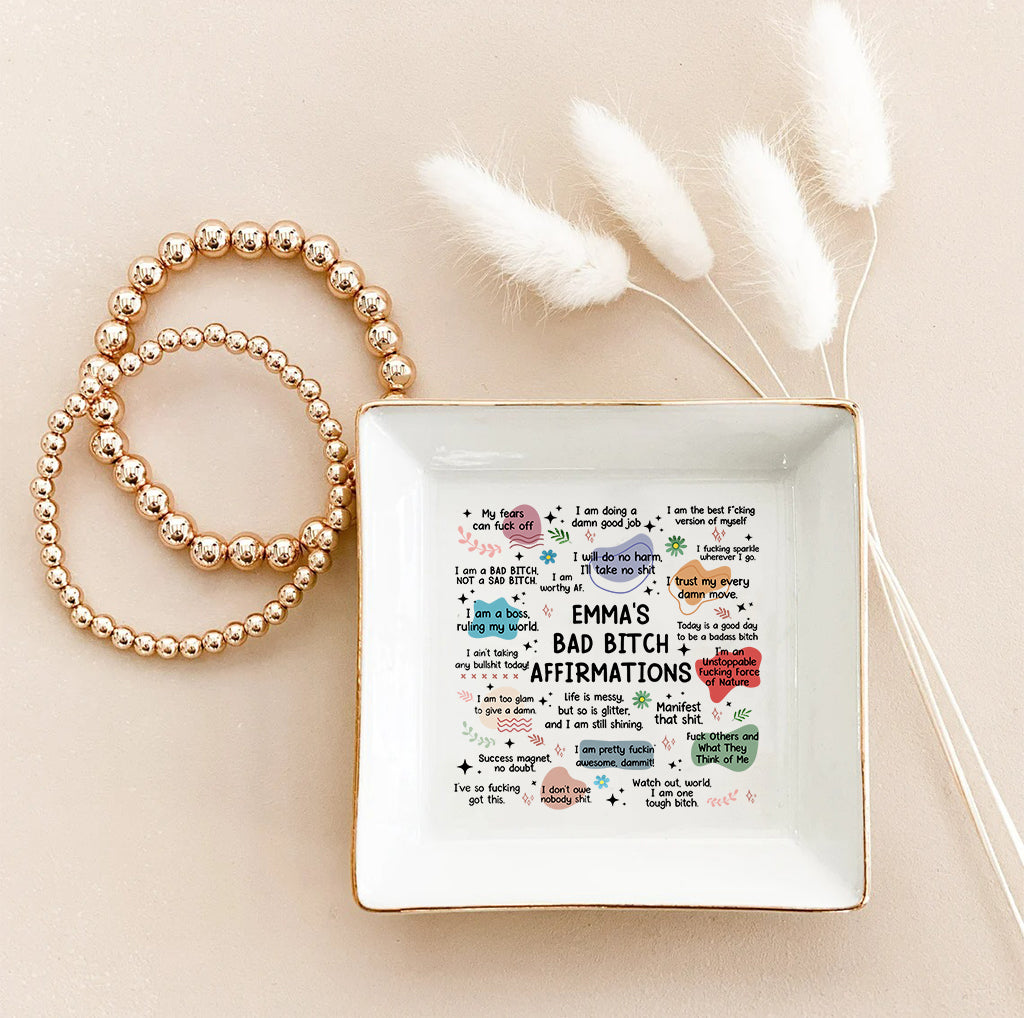 My fears
can fuck off
I am doing a
damn good job
I am the best F*cking
version of myself
I will do no harm,
I'll take no shit
I fucking sparkle
wherever I go.
I am a BAD BITCH,
NOT a SAD BITCH.
I am
worthy AF.
I trust my every
damn move.
I am a boss,
ruling my world.
EMMA'S
BAD BITCH
AFFIRMATIONS
Today is a good day
to be a badass bitch
I ain't taking
any bullshit today!
I'm an
Unstoppable
Fucking Force
of Nature
I am too glam
to give a damn.
life is messy,
but so is glitter,
and I am still shining.
Manifest
that shit.
Fuck Others and
What They
Think of Me
Success magnet,
no doubt.
I am pretty fuckin'
awesome, dammit!
I've so fucking
got this.
I don't owe
nobody shit.
Watch out, world,
I am one
tough bitch.